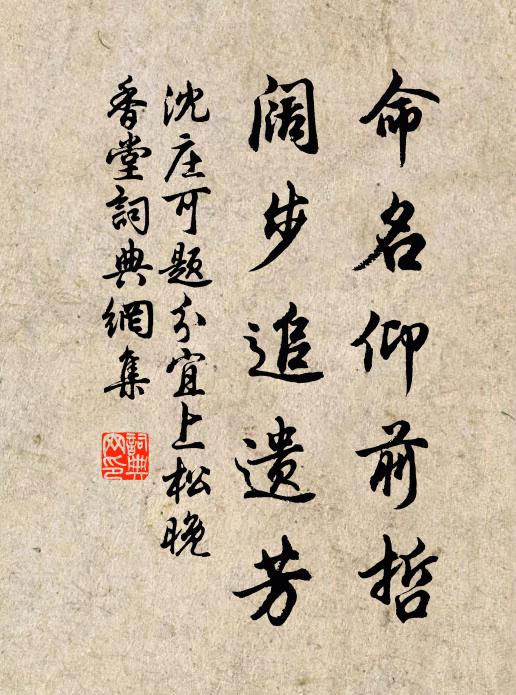 命名仰前哲
阔步追遗芳
沈庄可题分宜上松晚
香堂詞典網集
詞典网印